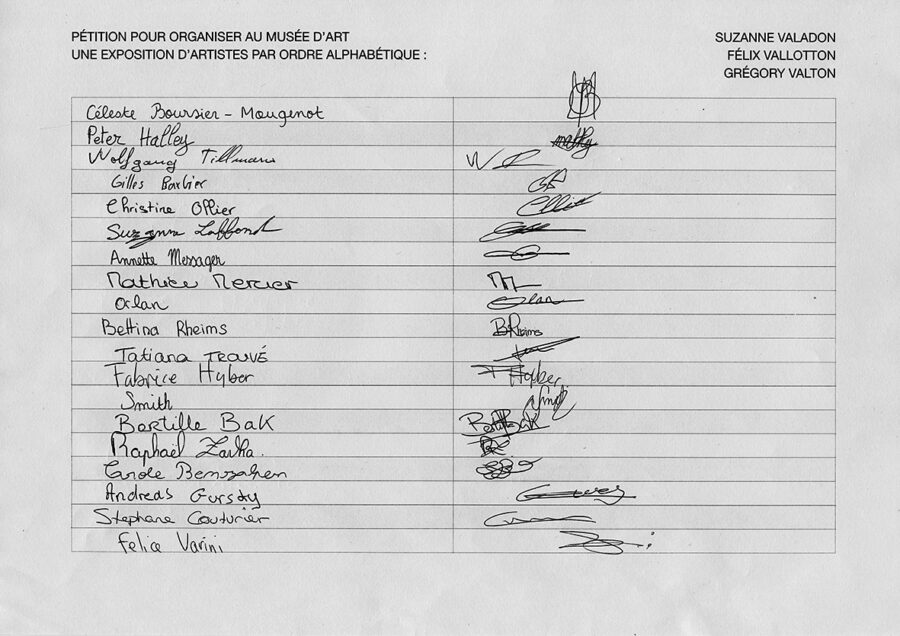 PÉTITION POUR ORGANISER AU MUSÉE D'ART
UNE EXPOSITION D'ARTISTES PAR ORDRE ALPHABÉTIQUE :
SUZANNE VALADON
FÉLIX VALLOTTON
GRÉGORY VALTON
Céleste Boursier-Mougenot
Peter Halley
Wolfgang Tillmans
Gilles Barbier
Christine Ollier
Suzanne Laffont
Annette Messager
Mathieu Mercier
Orlan Orlan
Bettina Rheims BRheims
Tatiana TROUVÉ
Fabrice Hyber F Hyber
Smith Smith
Bertille Bak Bertille Bak
Raphaël Zarka.
Carole Benzaken
Andreas Gursky
Stephane Couturier
Felice Varini